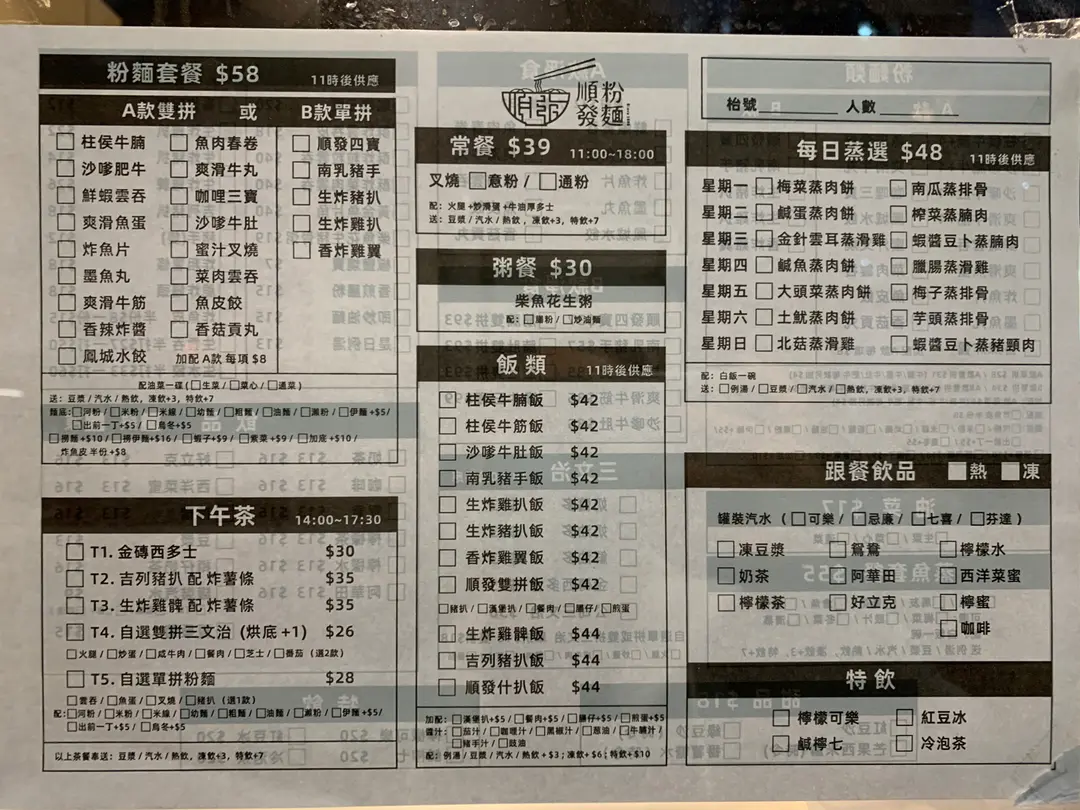 粉麵套餐 $58 11時後供應
A款雙拼 或 B款單拼
柱侯牛腩 魚肉春卷 順發四寶
沙嗲肥牛 爽滑牛丸 南乳豬手
鮮蝦雲吞 咖哩三寶 生炸豬扒
爽滑魚蛋 沙嗲牛肚 生炸雞扒
炸魚片 蜜汁叉燒 香炸雞翼
墨魚丸 菜肉雲吞
爽滑牛筋 魚皮餃
香辣炸醬 香菇貢丸
鳳城水餃 加配A款 每項 $8
配油菜一碟(□生菜/□菜心/□通菜)
送: 豆漿/汽水/熱飲, 凍飲+3, 特飲+7
麵底:□河粉/□米粉/□米線/□幼麵/□粗麵/□油麵/□瀨粉/□伊麵+$5/
□出前一丁+$5/□烏冬+$5
□撈麵+$10/□撈伊麵+$16/□蝦子+$9/□紫菜+$9/□加底+$10/
炸魚皮 半份+$8
下午茶 14:00~17:30
T1. 金磚西多士 $30
T2. 吉列豬扒 配 炸薯條 $35
T3. 生炸雞髀 配 炸薯條 $35
T4. 自選雙拼三文治 (烘底+1) $26
□火腿/□炒蛋/□咸牛肉/□餐肉/□芝士/□番茄 (選2款)
T5. 自選單拼粉麵 $28
□雲吞/□魚蛋/□叉燒/□豬扒 (選1款)
配:□河粉/□米粉/□米線/□幼麵/□粗麵/□油麵/□瀨粉/□伊麵+$5/
□出前一丁+$5/□烏冬+$5
以上茶餐奉送: 豆漿/汽水/熱飲, 凍飲+3, 特飲+7
順發
順發粉麵
常餐 $39 11:00~18:00
叉燒 □意粉 / □通粉
配: 火腿+炒滑蛋+牛油厚多士
送: 豆漿/汽水/熱飲, 凍飲+3, 特飲+7
粥餐 $30
柴魚花生粥
配: □腸粉/□炒油麵
飯類 11時後供應
柱侯牛腩飯 $42
柱侯牛筋飯 $42
沙嗲牛肚飯 $42
南乳豬手飯 $42
生炸雞扒飯 $42
生炸豬扒飯 $42
香炸雞翼飯 $42
順發雙拼飯 $42
□豬扒/□漢堡扒/□餐肉/□腸仔/□煎蛋
生炸雞髀飯 $44
吉列豬扒飯 $44
順發什扒飯 $44
加配: □漢堡扒+$5/□餐肉+$5/□腸仔+$5/□煎蛋+$5
醬汁: □茄汁/□咖哩汁/□黑椒汁/□蔥油/□牛腩汁/
□豬手汁/□豉油
配: 例湯/豆漿/汽水/熱飲+$3; 凍飲+$6; 特飲+$10
枱號 人數
每日蒸選 $48 11時後供應
星期一 梅菜蒸肉餅 南瓜蒸排骨
星期二 鹹蛋蒸肉餅 榨菜蒸腩肉
星期三 金針雲耳蒸滑雞 蝦醬豆卜蒸腩肉
星期四 鹹魚蒸肉餅 臘腸蒸滑雞
星期五 大頭菜蒸肉餅 梅子蒸排骨
星期六 土魷蒸肉餅 芋頭蒸排骨
星期日 北菇蒸滑雞 蝦醬豆卜蒸豬頸肉
配: 白飯一碗
送: □例湯/□豆漿/□汽水/□熱飲, 凍飲+3, 特飲+7
跟餐飲品 熱 凍
罐裝汽水 (□可樂/□忌廉/□七喜/□芬達)
凍豆漿 鴛鴦 檸檬水
奶茶 阿華田 西洋菜蜜
檸檬茶 好立克 檸蜜
咖啡
特飲
檸檬可樂 紅豆冰
鹹檸七 冷泡茶